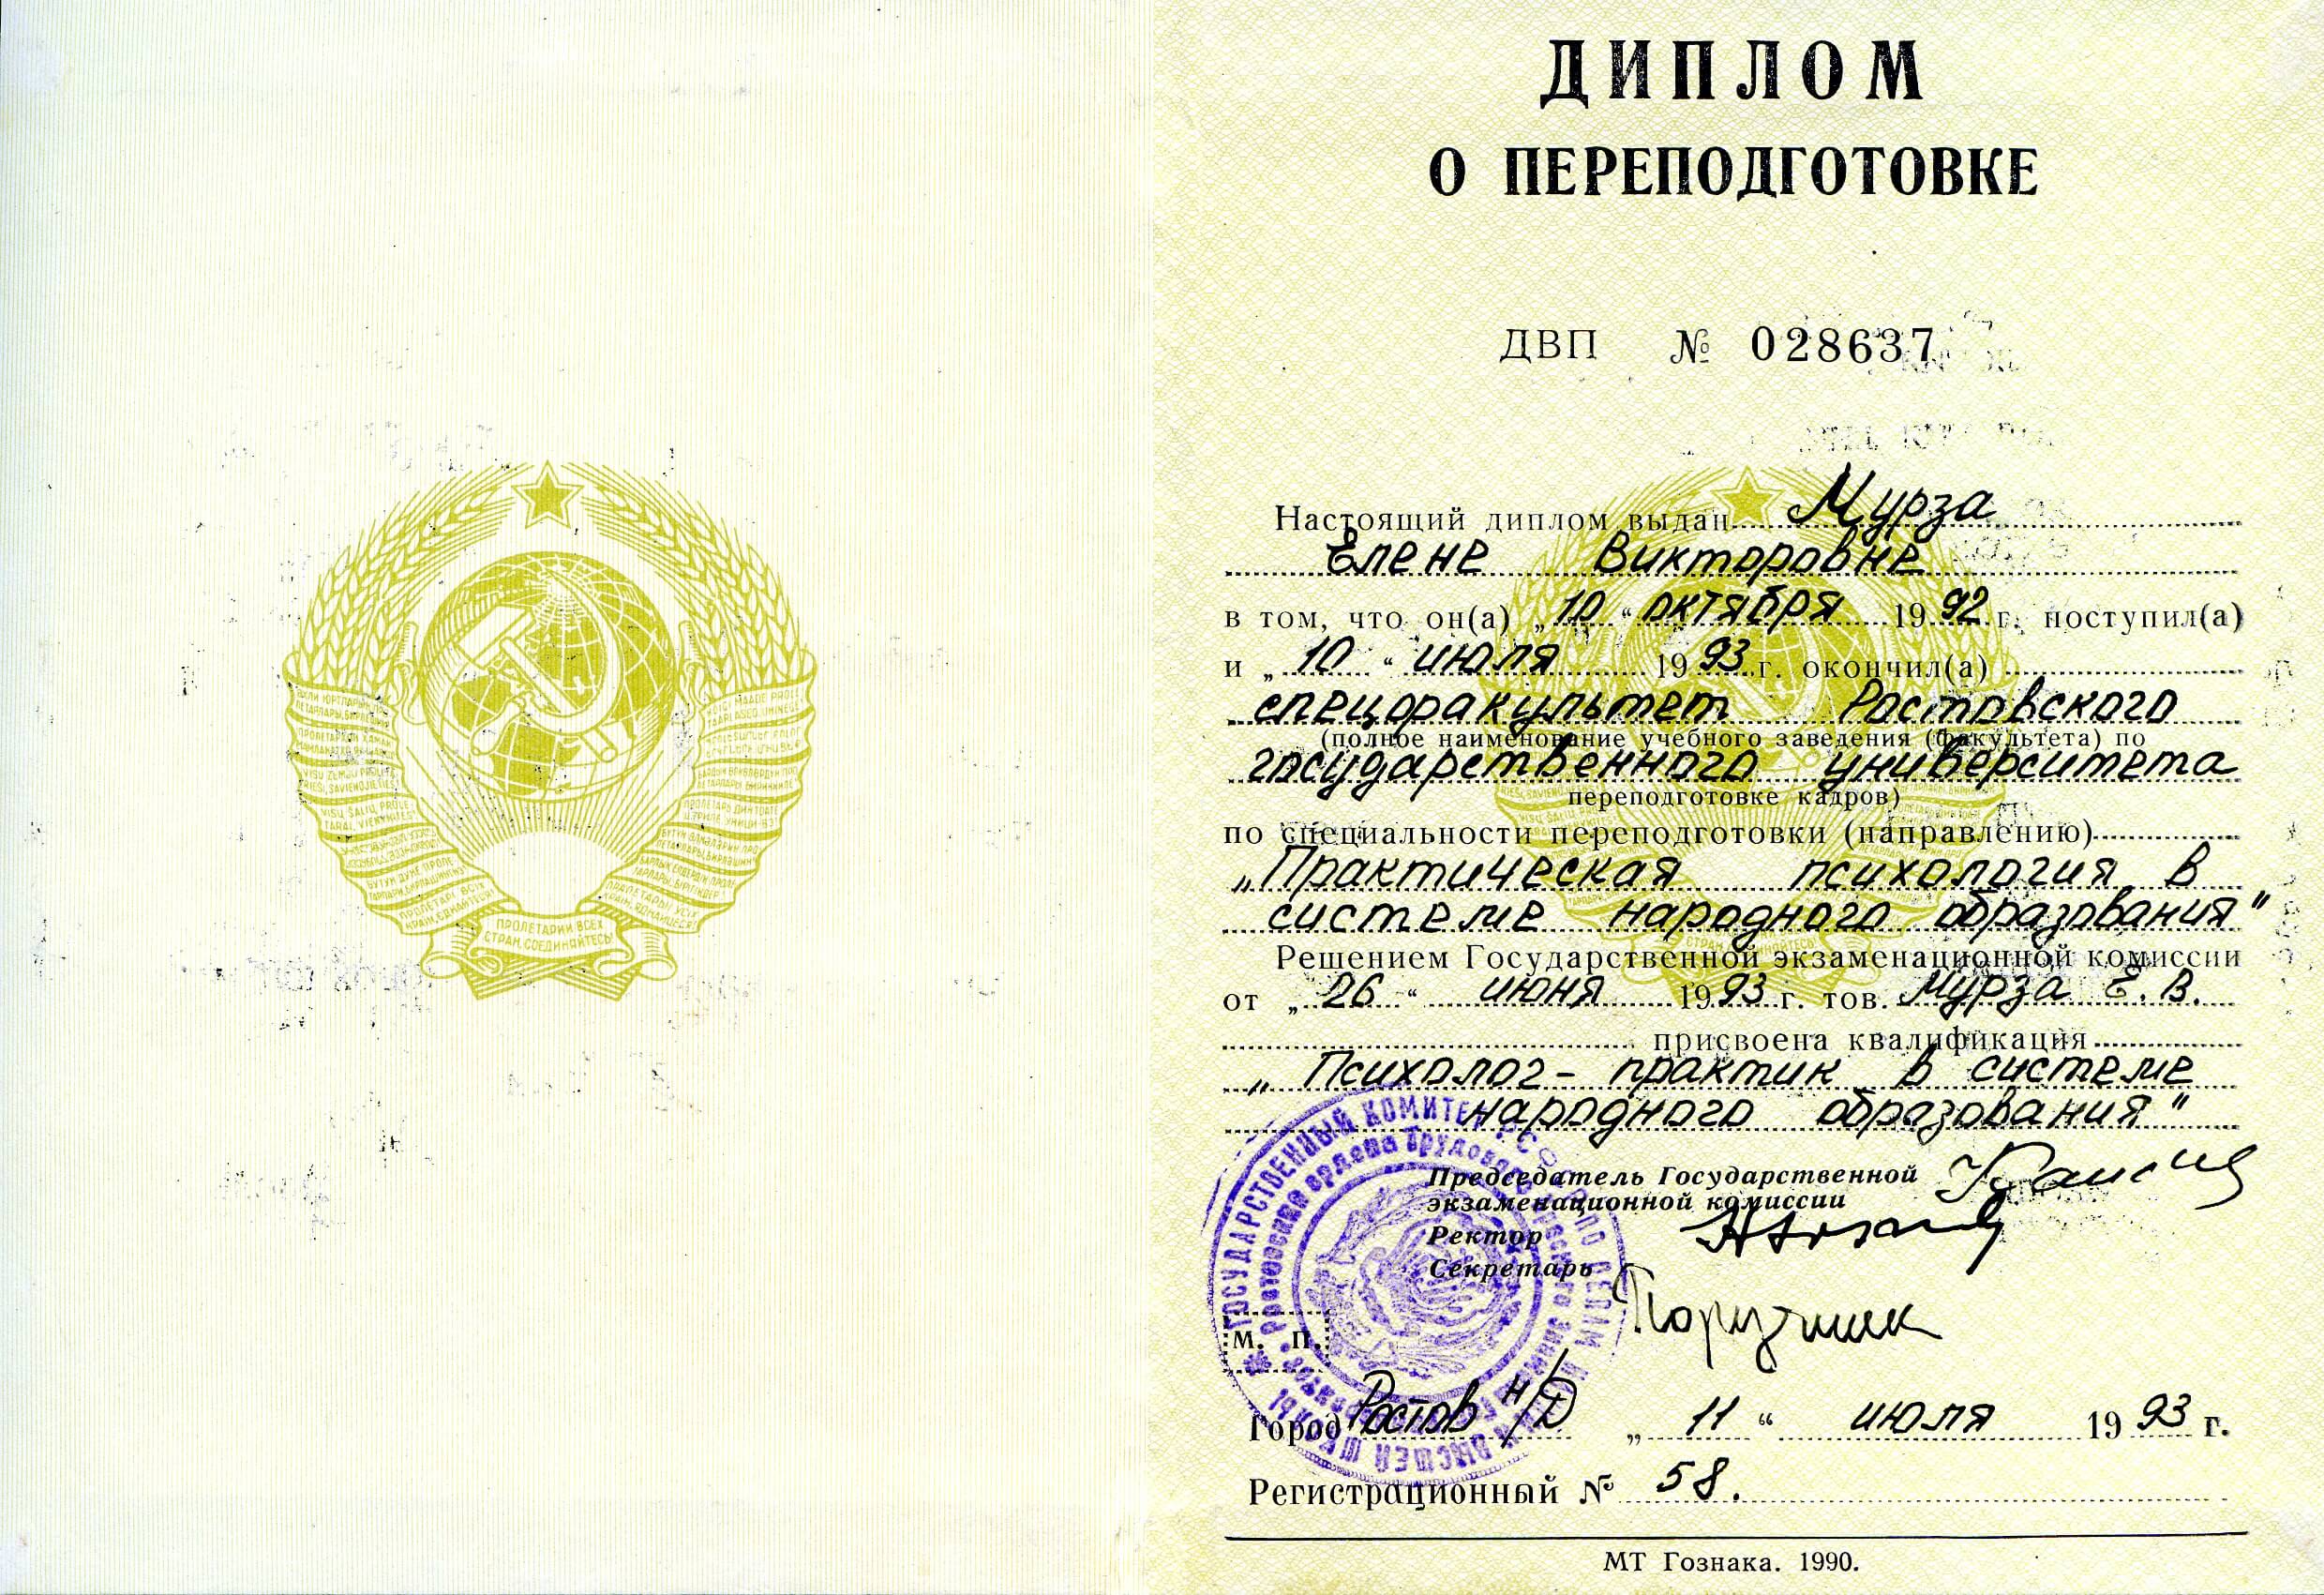 ПРОЛЕТАРИИ ВСЕХ
СТРАН, СОЕДИНЯЙТЕСЬ!
ДИПЛОМ
О ПЕРЕПОДГОТОВКЕ
ДВП № 028637
Настоящий диплом выдан Мурза
Елене Викторовне
в том, что он(а) „10“ октября 1992 г. поступил(а)
и „10“ июля 1993 г. окончил(а)
спецфакультет Ростовского
(полное наименование учебного заведения (факультета) по
государственного университета
переподготовке кадров)
по специальности переподготовки (направлению)
„Практическая психология в
системе народного образования"
Решением Государственной экзаменационной комиссии
от „26“ июня 1993 г. тов. Мурза Е. В.
присвоена квалификация
„Психолог-практик в системе
народного образования"
Председатель Государственной
экзаменационной комиссии
Ректор
Секретарь
М. П.
ГОСУДАРСТВЕННЫЙ КОМИТЕТ
Город Ростов н/Д „11“ июля 1993 г.
Регистрационный № 58.
МТ Гознака. 1990.